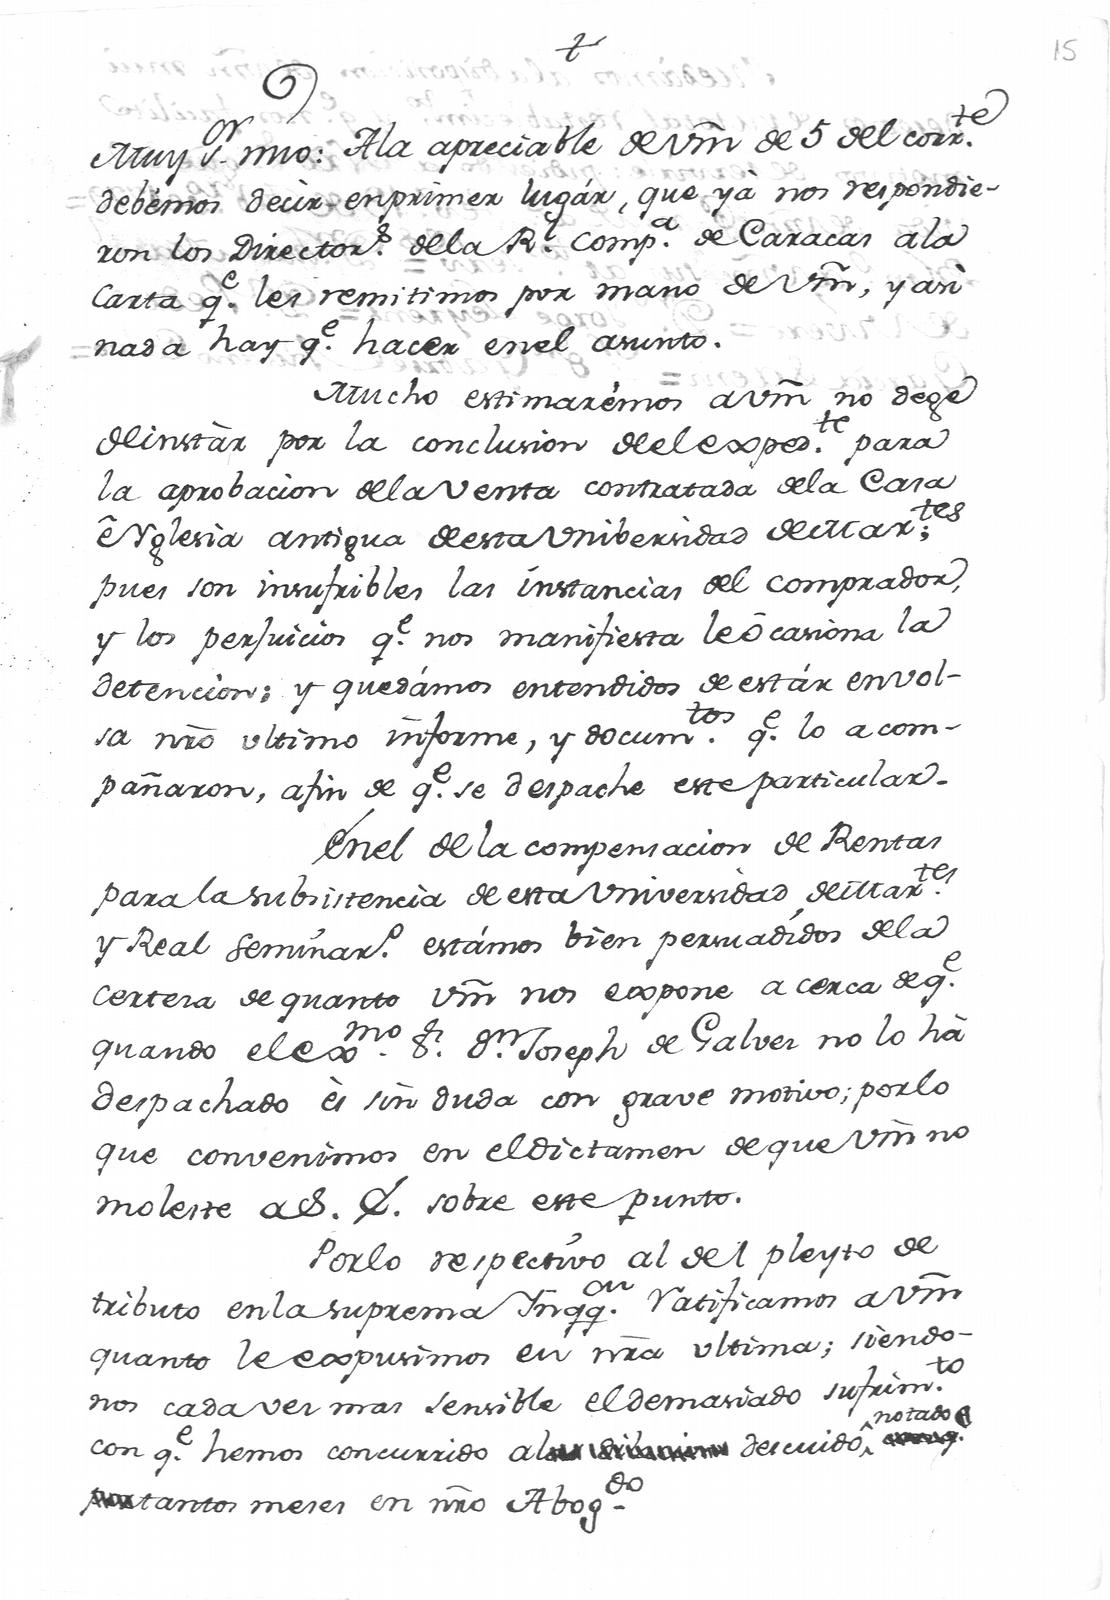 15
Muy S.or mio: Ala apreciable de Vm̃ de 5 del corr.te
debémos decir enprimer lugár, que yà nos respondie-
ron los Director.s dela R.l Comp.a de Caracas ala
Carta q.e les remitimos por mano de Vm̃, y asi
nada hay q.e hacer enel asunto.
Mucho estimarémos a Vm̃ no dege
deinstàr por la conclusion delel exped.te para
la aprobacion dela Venta contratada dela Casa
ê Yglesia antigua deesta Unibersidad deMar.tes;
pues son insufribles las instancias del comprador,
y los perjuicios q.e nos manifiesta le ôcasiona la
detencion; y quedámos entendidos de estár envol-
sa nr̃o ultimo informe, y docum.tos q.e lo acom-
pañaron, afin de q.e se despache este particular.
Enel de la compensacion de Rentas
para la subsistencia de esta Universidad deMar.tes
y Real Seminar.o estámos bien persuadidos dela
certeza de quanto Vm̃ nos expone acerca de q.e
quando el ex.mo S.r d.n Joseph de Galvez no lo hà
despachado ès sin duda con grave motivo; porlo
que convenimos en el dictamen de que Vm̃ no
moleste a S. E. sobre este punto.
Porlo respectivo al del pleyto de
tributo enla suprema Ynqq.on Ratificamos a Vm̃
quanto le expusimos en nr̃a ultima; siendo-
nos cada vez mas sensible el demasiado sufrim.to
con q.e hemos concurrido al descuido, notado
tantos meses en nr̃o Abog.do